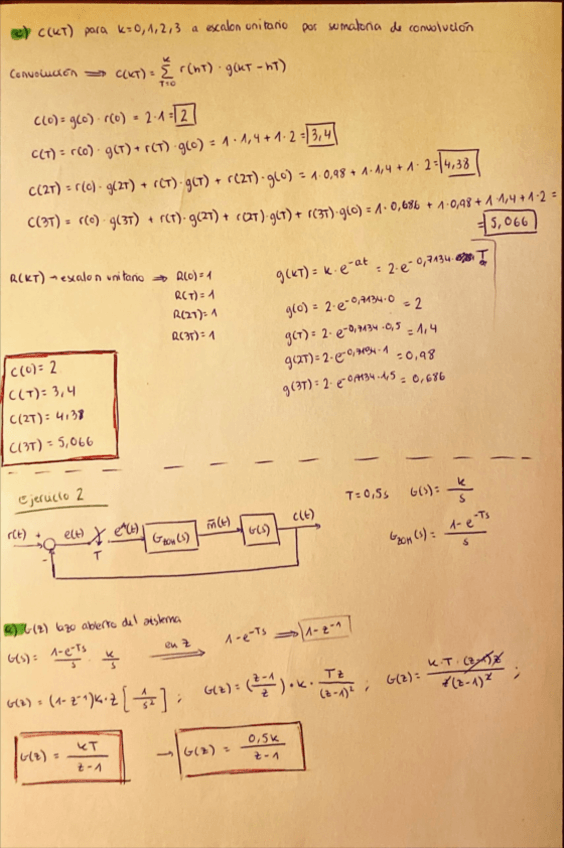 c) C(KT) para k=0,1,2,3 a escalon unitario por sumatoria de convolución
Convolución ⟹ C(KT) = Σ_{T=0}^{k} r(hT) · g(KT-hT)
C(0) = g(0) · r(0) = 2·1 = 2
C(T) = r(0) · g(T) + r(T) · g(0) = 1·1,4 + 1·2 = 3,4
C(2T) = r(0) · g(2T) + r(T) · g(T) + r(2T) · g(0) = 1·0,98 + 1·1,4 + 1·2 = 4,38
C(3T) = r(0) · g(3T) + r(T) · g(2T) + r(2T) · g(T) + r(3T) · g(0) = 1·0,686 + 1·0,98 + 1·1,4 + 1·2 =
= 5,066
R(KT) → escalon unitario ⟹ R(0) = 1
R(T) = 1
R(2T) = 1
R(3T) = 1
g(KT) = k·e^{-at} = 2·e^{-0,7134·T}
g(0) = 2·e^{-0,7134·0} = 2
g(T) = 2·e^{-0,7134·0,5} = 1,4
g(2T) = 2·e^{-0,7134·1} = 0,98
g(3T) = 2·e^{-0,7134·1,5} = 0,686
C(0) = 2
C(T) = 3,4
C(2T) = 4,38
C(3T) = 5,066
Ejercicio 2
T = 0,5s G(s) = k/s
G_{ZOH}(s) = (1-e^{-Ts})/s
r(t) + - e(t) T e*(t) G_{ZOH}(s) m̄(t) G(s) c(t)
a) G(z) lazo abierto del sistema
G(s) = (1-e^{-Ts})/s · k/s en z ⟹ 1-e^{-Ts} ⟹ 1-z^{-1}
G(z) = (1-z^{-1})k·Z[1/s²] ; G(z) = ((z-1)/z)·k·Tz/(z-1)² ; G(z) = k·T·(z-1)z/z(z-1)² ;
G(z) = kT/(z-1) → G(z) = 0,5k/(z-1)